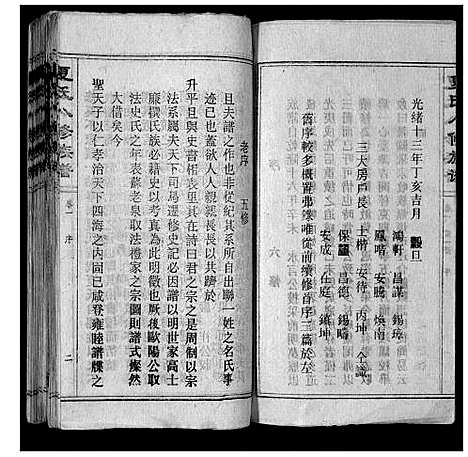 光緒十三年丁亥吉月穀旦
鴻軒 昌謀 錫璋
鳳喈 安騰 煥南
三大房戶長 士楷 安待 丙坤 仝識
保 昌德 錫疇
安成 任庭 鎮坤
舊序較多概置弗辛艱迦從前續修首序三篇於左
老序 五修
且夫譜之作也非從紀其系所自出聯一姓之名氏事
迹已也蓋欲人人親親長長以共躋於
升平且與史書相表裏者在詩曰君之宗之是周制以宗
法系屬夫天下司馬遷修史記必因譜以明世家高士
廉撰氏族必藉史以考真為此明徵也厥後歐陽公取
法史氏之年表蘇老泉取法禮家之宗圖則譜式燦然
大備矣今
聖天子以仁孝治天下四海之內固已咸登雍睦譜牒之
夏氏八修族譜
卷一 序
二